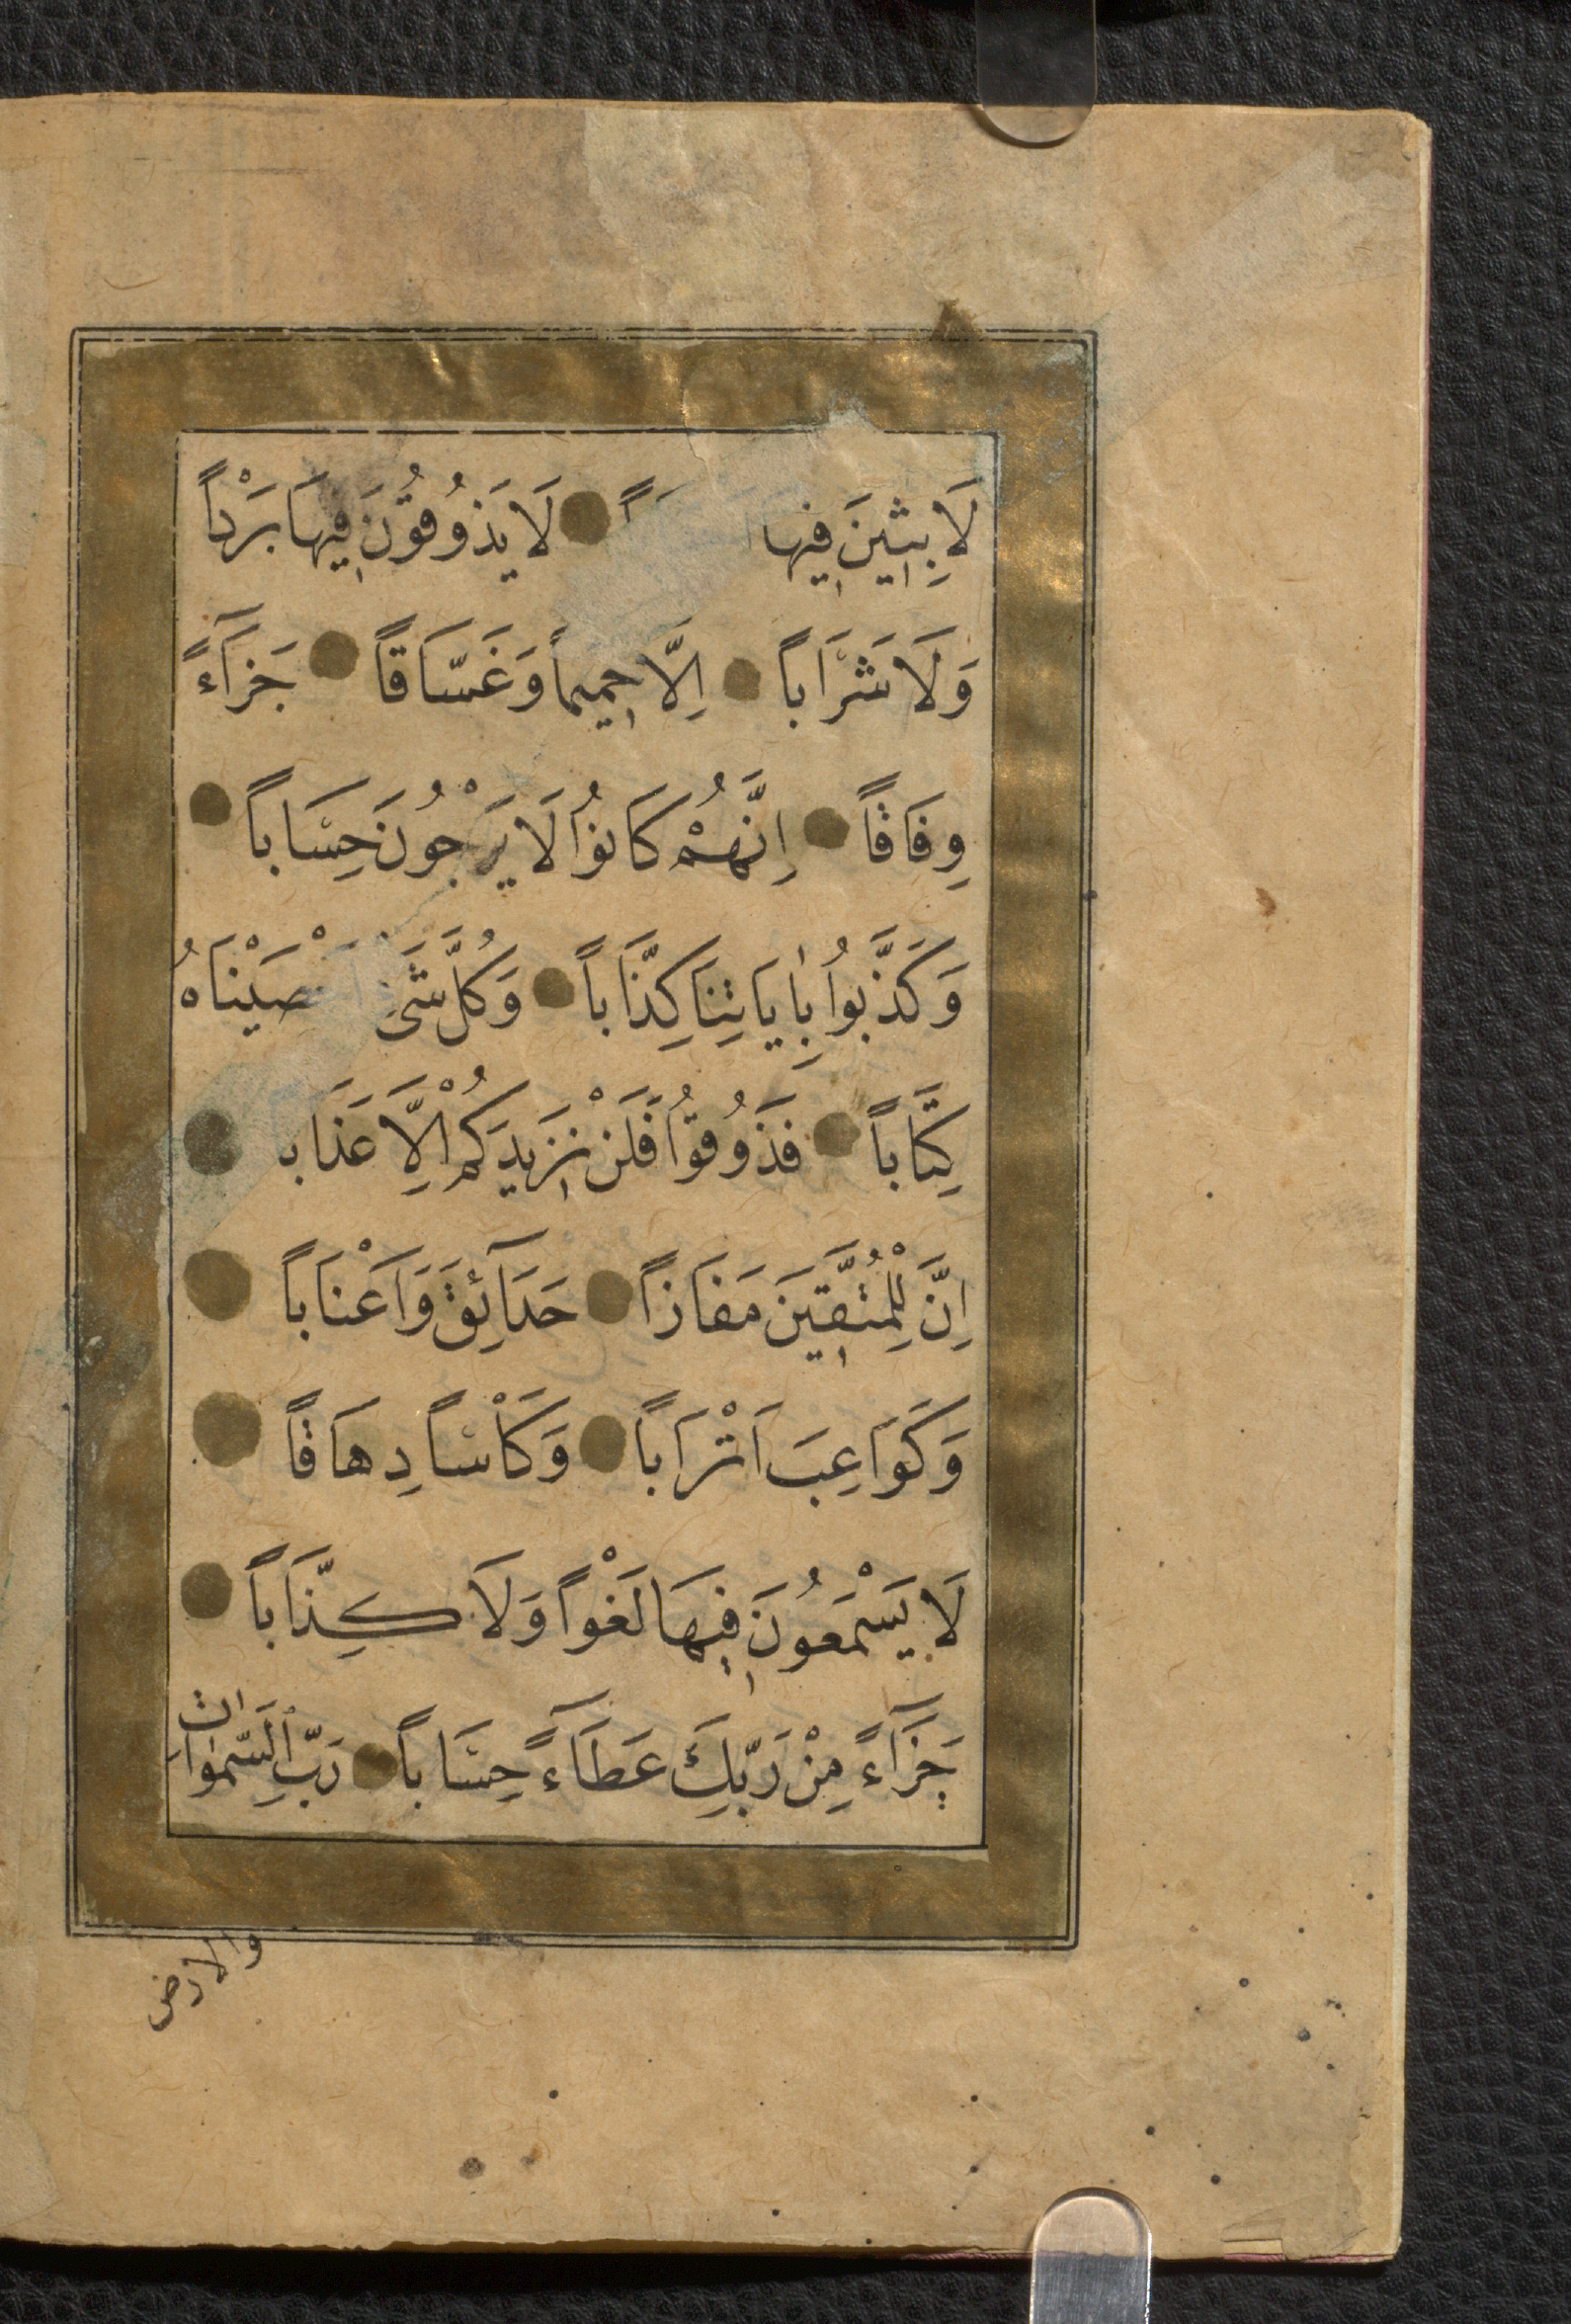 لَابِثِينَ فِيهَا لَا يَذُوقُونَ فِيهَا بَرْداً
وَلَا شَرَاباً اِلَّا حَمِيماً وَغَسَّاقاً جَزَآءً
وِفَاقاً اِنَّهُمْ كَانُوا لَا يَرْجُونَ حِسَاباً
وَكَذَّبُوا بِاٰيَاتِنَا كِذَّاباً وَكُلَّ شَىْ صَيْنَاهُ
كِتَاباً فَذُوقُوا فَلَنْ نَزِيدَكُمْ اِلَّا عَذَاب
اِنَّ لِلْمُتَّقِينَ مَفَازاً حَدَآئِقَ وَاَعْنَاباً
وَكَوَاعِبَ اَتْرَاباً وَكَاْساً دِهَاقاً
لَا يَسْمَعُونَ فِيهَا لَغْواً وَلَا كِذَّاباً
جَزَآءً مِنْ رَبِّكَ عَطَآءً حِسَاباً رَبِّ السَّمٰوَاتِ
والارض